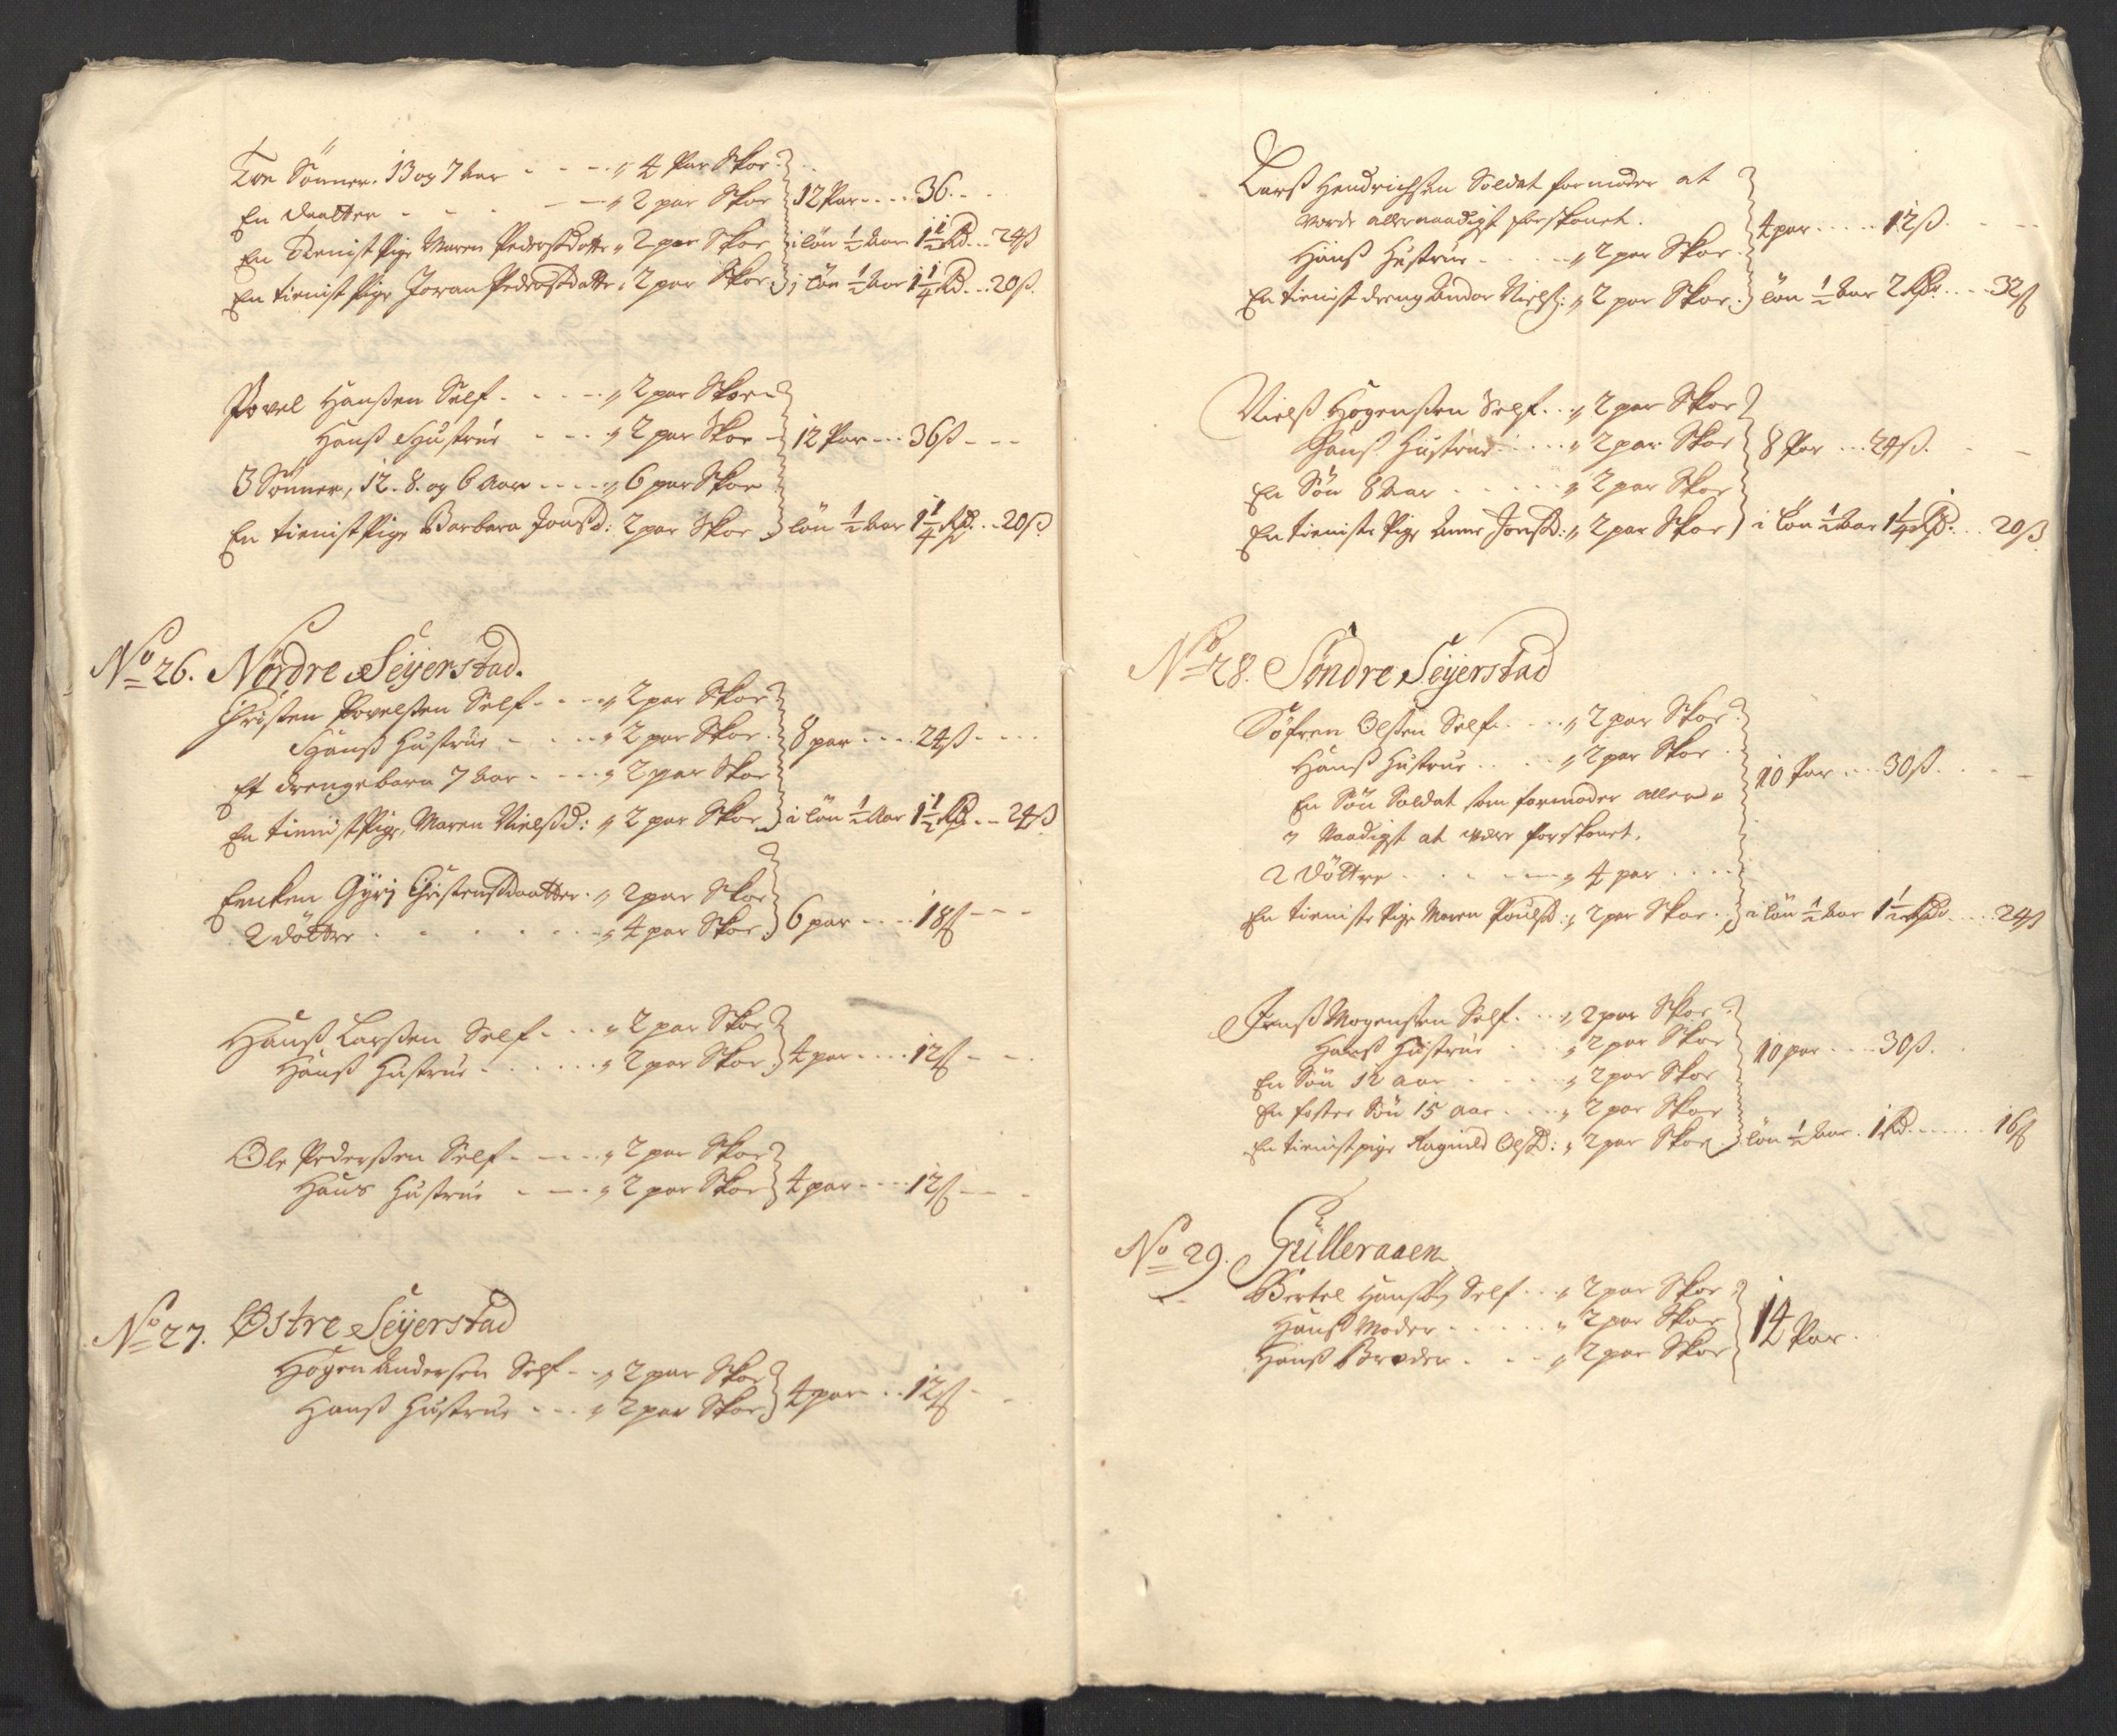 Tvo Sönner. 13 og 7 Aar - - - 4 Par Skoe
En Daatter - - - 2 par Skoe 12 Par - - - 36 - -
En Tienist Pige Maren Pedersdotter 2 par Skoe i lön ½ Aar 1½ Rd - - 24 ß
En tienist Pige Joran Pedersdatter 2 par Skoe i lön ½ Aar 1¼ Rd - - 20 ß.
Povel Hanßen Self - - - 2 par Skoe
Hanß Hustrue - - - 2 par Skoe 12 Par - - - 36 ß - - -
3 Sönner, 12. 8. og 6 Aar - - - 6 par Skoe
En tienist Pige Barbara Jonsd: 2 par Skoe lön ½ Aar 1¼ Rd. - - 20 ß
No 26. Nordre Seÿerstad.
Christen Povelsen Self - - - 2 par Skoe
Hanß Hustrue - - - 2 par Skoe 8 par - - - 24 ß - - -
Et drengebarn 7 Aar - - - 2 par Skoe
En tienist Pige, Maren Nielsd: 2 par Skoe i lön ½ Aar 1½ Rd - - 24 ß
Encken Gÿrj Christensdaatter 2 par Skoe
2 döttre - - - 4 par Skoe 6 par - - - 18 ß - - -
Hanß Larßen Self - - - 2 par Skoe
Hanß Hustrue - - - 2 par Skoe 4 par - - - 12 ß - - -
Ole Pederßen Self - - - 2 par Skoe
Hans Hustrue - - - 2 par Skoe 4 par - - - 12 ß - - -
No 27. Østre Seÿerstad
Hogen Andersen Self - - 2 par Skoe
Hanß Hustrue - - - 2 par Skoe 4 par - - 12 ß - -
Larß Hendrichsen Soldat formoder at
vorde allernaadigst forskonet.
Hanß Hustrue - - - 2 par Skoe 4 par - - - 12 ß. - -
En tienist dreng Andor Nielß: 2 par Skoe lön ½ Aar 2 Rdr - - - 32 ß
Nielß Hogenßen Self - - 2 par Skoe
Hanß Hustrue - - - 2 par Skoe 8 Par - - - 24 ß. - -
En Sön 8 Aar - - - 2 par Skoe
En tieniste Pige Anne Jonsd: 2 par Skoe i lön ½ Aar 1¼ Rd. - - 20 ß
No 28. Söndre Seÿerstad
Söfren Olßen Self - - - 2 par Skoe
Hanß Hustrue - - - 2 par Skoe 10 Par - - - 30 ß. - -
En Sön Soldat som formoder aller-
Naadigst at være forskonet.
2 Döttre - - - 4 par - - -
En tieniste Pige Maren Poulsd: 2 par Skoe i lön ½ Aar 1½ Rd - - - 24 ß
Jenß Mogenßen Self - - 2 par Skoe
Hanß Hustrue - - - 2 par Skoe 10 par - - - 30 ß.
En Sön 12 aar - - - 2 par Skoe
En foster Sön 15 aar - - - 2 par Skoe
En tienist pige Ragnild Olsd: 2 par Skoe lön ½ Aar. 1 Rd. - - - 16 ß
No 29. Gülleraaen
Bertel Hanßen Self - - 2 par Skoe
Hanß Moder - - - 2 par Skoe 14 Par.
Hanß Broder - - - 2 par Skoe